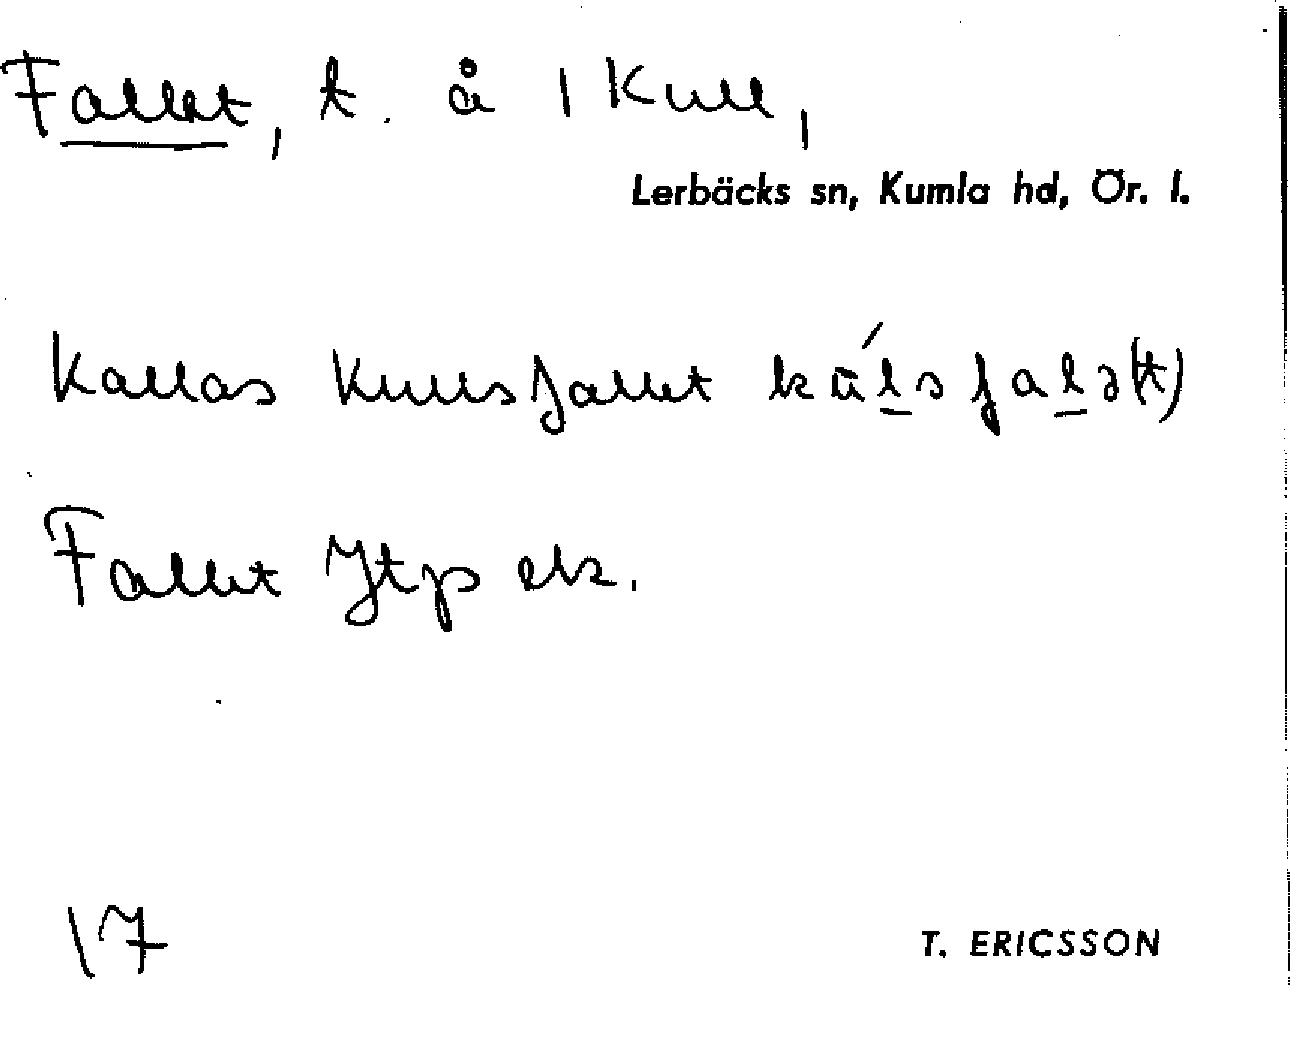 Fallet, t. å 1 Kull,
Lerbäcks sn, Kumla hd, Ör. l.
Kallas Kullsfallet
Fallet Jtp ek.
17
T. ERICSSON